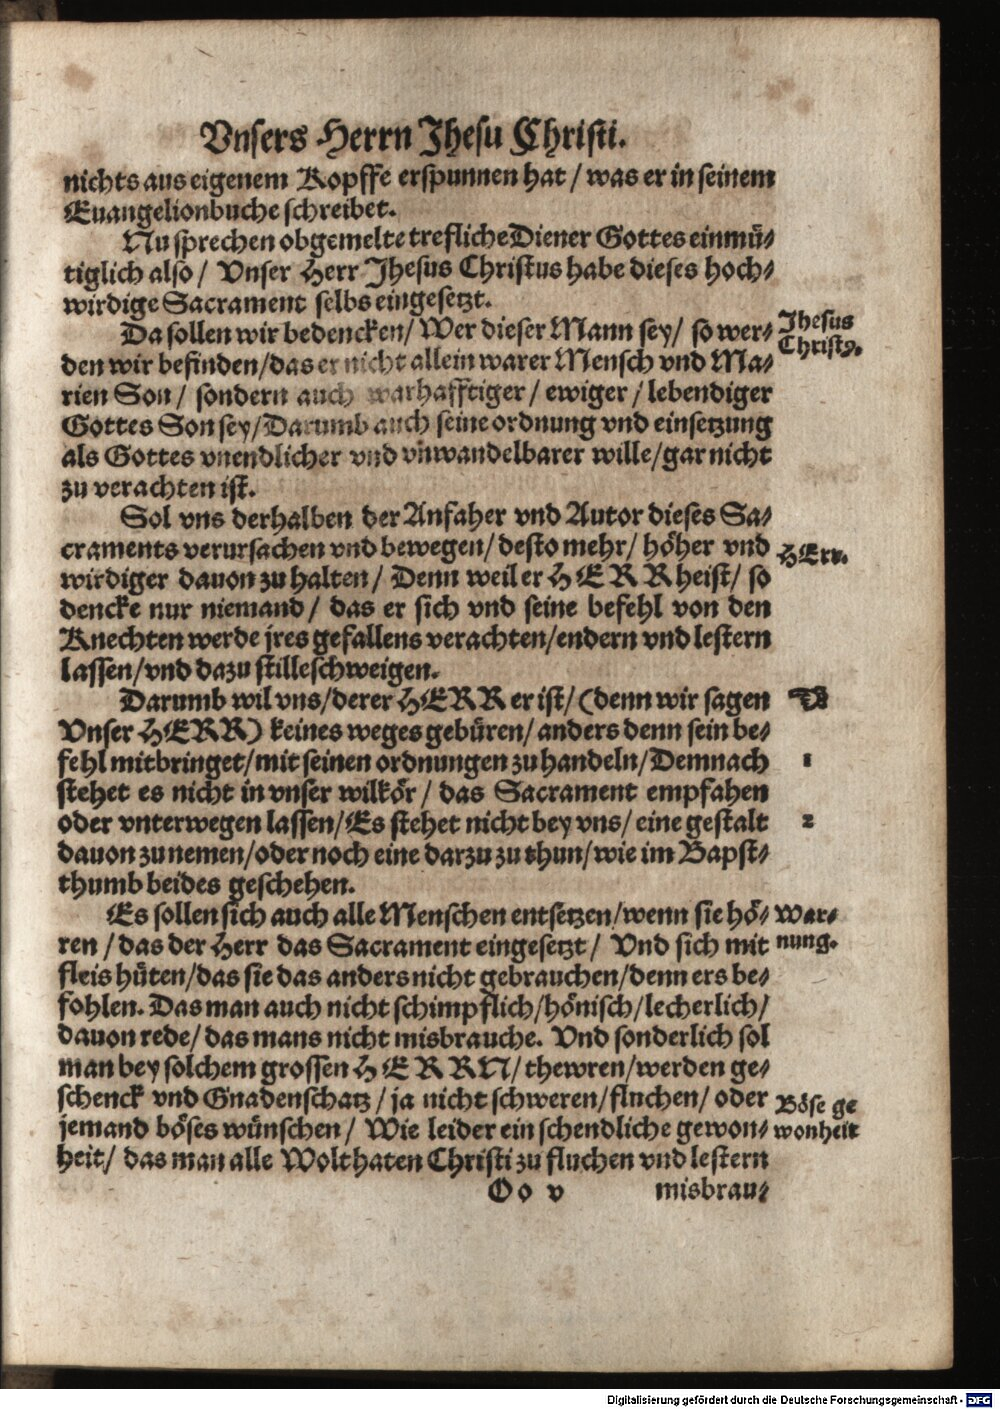 Vnsers Herrn Jhesu Christi.
nichts aus eigenem Kopffe erspunnen hat / was er in seinem
Euangelionbuche schreibet.
Nu sprechen obgemelte trefliche Diener Gottes einmü-
tiglich also / Vnser Herr Jhesus Christus habe dieses hoch-
wirdige Sacrament selbs eingesetzt.
Da sollen wir bedencken / Wer dieser Mann sey / so wer-
Jhesus
Christꝯ.
den wir befinden / das er nicht allein warer Mensch vnd Ma-
rien Son / sondern auch warhafftiger / ewiger / lebendiger
Gottes Son sey / Darumb auch seine ordnung vnd einsetzung
als Gottes vnendlicher vnd vnwandelbarer wille / gar nicht
zu verachten ist.
Sol vns derhalben der Anfaher vnd Autor dieses Sa-
craments verursachen vnd bewegen / desto mehr / höher vnd
HErr.
wirdiger dauon zu halten / Denn weil er HERR heist / so
dencke nur niemand / das er sich vnd seine befehl von den
Knechten werde jres gefallens verachten / endern vnd lestern
lassen / vnd dazu stilleschweigen.
Darumb wil vns / derer HERR er ist / (denn wir sagen
Vnser HERR) keines weges gebüren / anders denn sein be-
fehl mitbringet / mit seinen ordnungen zu handeln / Demnach
1
stehet es nicht in vnser wilkör / das Sacrament empfahen
oder vnterwegen lassen / Es stehet nicht bey vns / eine gestalt
2
dauon zu nemen / oder noch eine darzu zu thun / wie im Bapst-
thumb beides geschehen.
Es sollen sich auch alle Menschen entsetzen / wenn sie hö-
War-
nung.
ren / das der Herr das Sacrament eingesetzt / Vnd sich mit
fleis hüten / das sie das anders nicht gebrauchen / denn ers be-
fohlen. Das man auch nicht schimpflich / hönisch / lecherlich /
dauon rede / das mans nicht misbrauche. Vnd sonderlich sol
man bey solchem grossen HERRN / thewren / werden ge-
schenck vnd Gnadenschatz / ja nicht schweren / fluchen / oder
Böse ge
wonheit
jemand böses wünschen / Wie leider ein schendliche gewon-
heit / das man alle Wolthaten Christi zu fluchen vnd lestern
Oo v
misbrau-
Digitalisierung gefördert durch die Deutsche Forschungsgemeinschaft - DFG